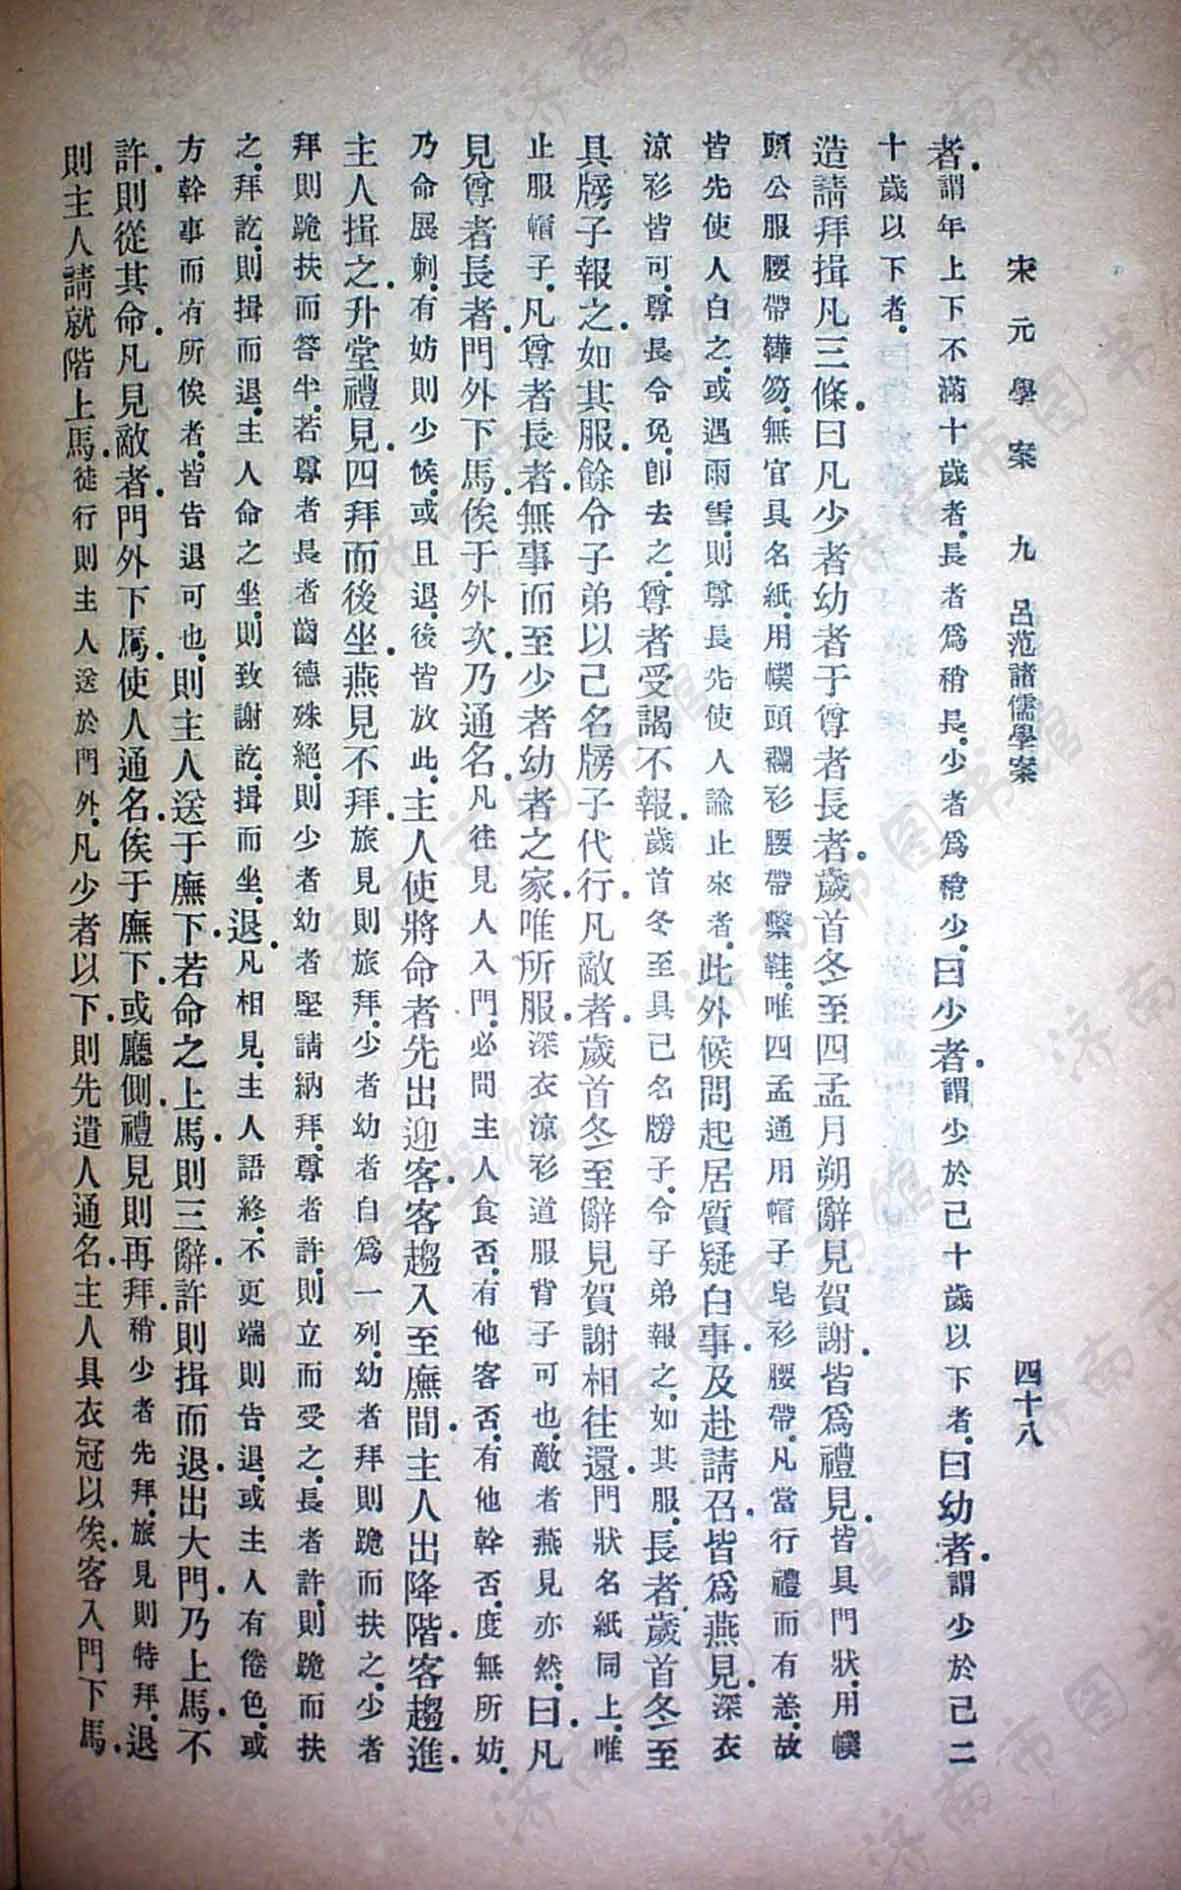 宋元學案　九　呂范諸儒學案　四十八
者。謂年上下不滿十歲者。長者爲稍長。少者爲稍少。曰少者。謂少於己十歲以下者。曰幼者。謂少於己二
十歲以下者。
造請拜揖凡三條。曰凡少者幼者于尊者長者。歲首冬至四孟月朔辭見賀謝。皆爲禮見。皆具門狀。用幞
頭公服腰帶鞾笏。無官具名紙。用幞頭襴衫腰帶繫鞋。唯四孟通用帽子皂衫腰帶。凡當行禮而有恙。故
皆先使人白之。或遇雨雪。則尊長先使人諭止來者。此外候問起居質疑白事。及赴請召。皆爲燕見。深衣
涼衫皆可。尊長令免。卽去之。尊者受謁不報。歲首冬至具己名牓子。令子弟報之。如其服。長者歲首冬至
具牓子報之。如其服。餘令子弟以己名牓子代行。凡敵者。歲首冬至辭見賀謝相往還。門狀名紙同上。唯
止服帽子。凡尊者長者。無事而至少者幼者之家。唯所服。深衣涼衫道服背子可也。敵者燕見亦然。曰。凡
見尊者長者。門外下馬。俟于外次。乃通名。凡往見人入門。必問主人食否。有他客否。有他幹否。度無所妨。
乃命展刺。有妨則少候。或且退。後皆放此。主人使將命者先出迎客。客趨入至廡間。主人出降階。客趨進。
主人揖之。升堂禮見。四拜而後坐。燕見不拜。旅見則旅拜。少者幼者自爲一列。幼者拜則跪而扶之。少者
拜則跪扶而答半。若尊者長者齒德殊絕。則少者幼者堅請納拜。尊者許。則立而受之。長者許。則跪而扶
之。拜訖。則揖而退。主人命之坐。則致謝訖。揖而坐。退。凡相見。主人語終。不更端則告退。或主人有倦色。或
方幹事而有所俟者。皆告退可也。則主人送于廡下。若命之上馬。則三辭。許則揖而退。出大門。乃上馬。不
許。則從其命。凡見敵者。門外下馬。使人通名。俟于廡下。或廳側。禮見則再拜。稍少者先拜。旅見則特拜。退
則主人請就階上馬。徒行則主人送於門外。凡少者以下。則先遣人通名。主人具衣冠以俟。客入門下馬。